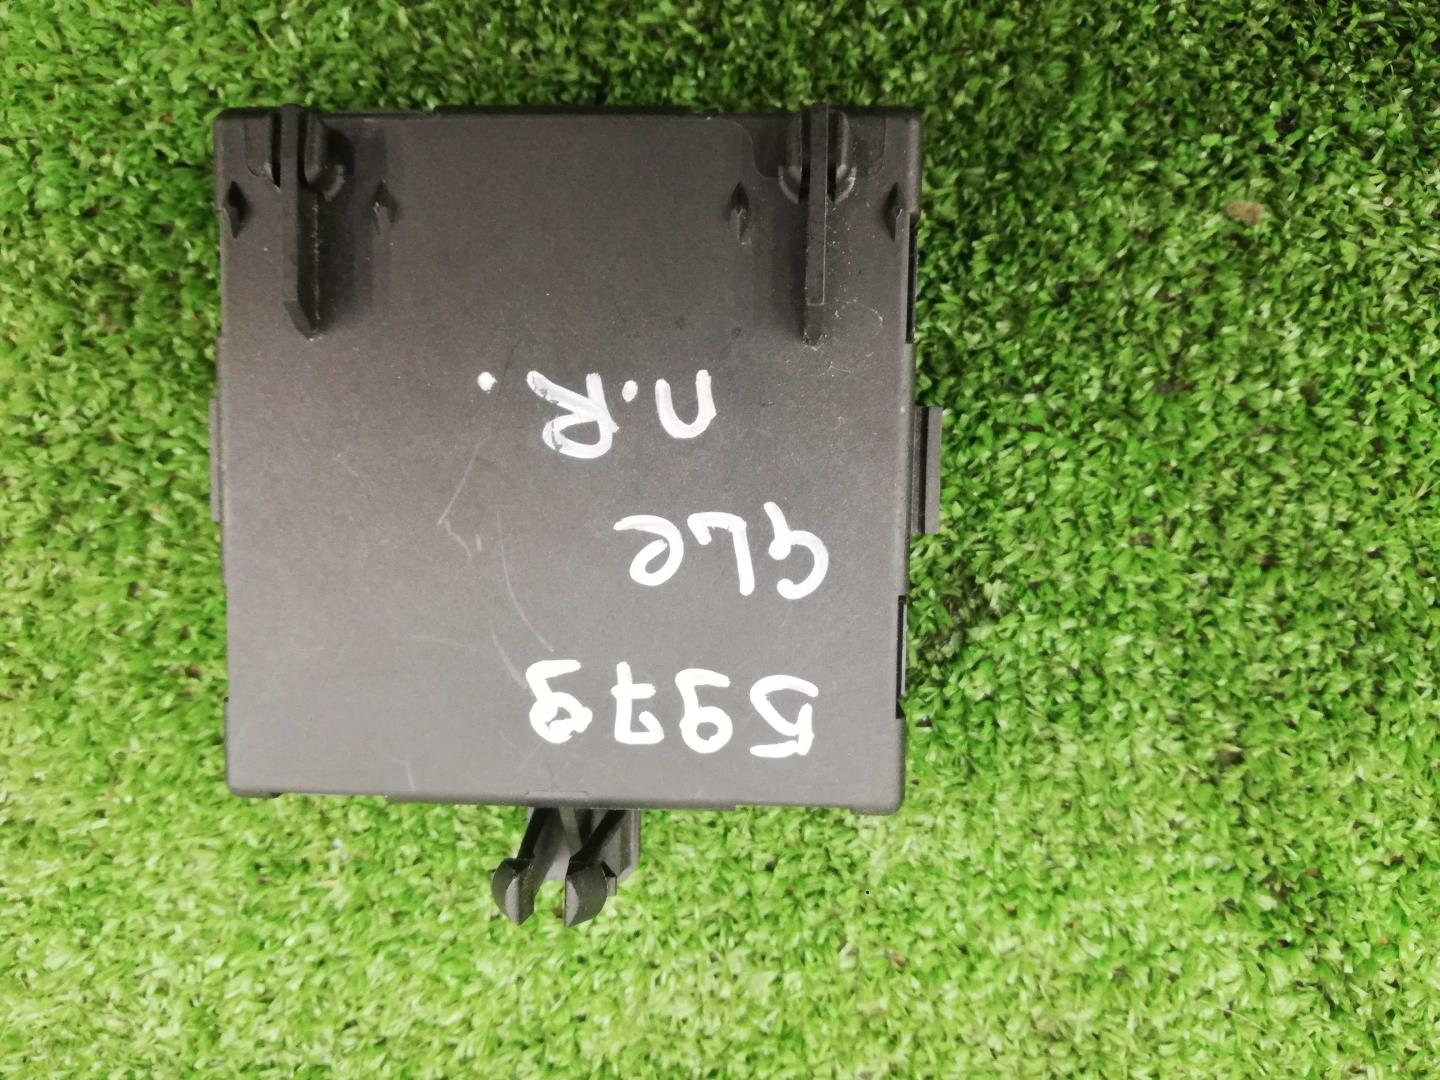 5978
GLC
n.R.